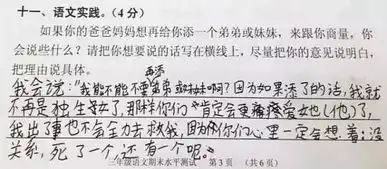 十一、语文实践。(4分)
如果你的爸爸妈妈想再给你添一个弟弟或妹妹，来跟你商量。你
会说些什么？请把你想要说的话写在横线上，尽量把你的意见说明白，
把理由说具体。
再添
我会说："我能不能不要弟弟或妹妹啊？因为如果添了的话，我就
不再是独生女了，那样你们肯定会更疼爱她(他)了，
我出了事也不会全力去救我，因为你们心里一定会想着：没
关系，死了一个，还有一个呢。"
三年级语文期末水平测试 第3页 (共6页)